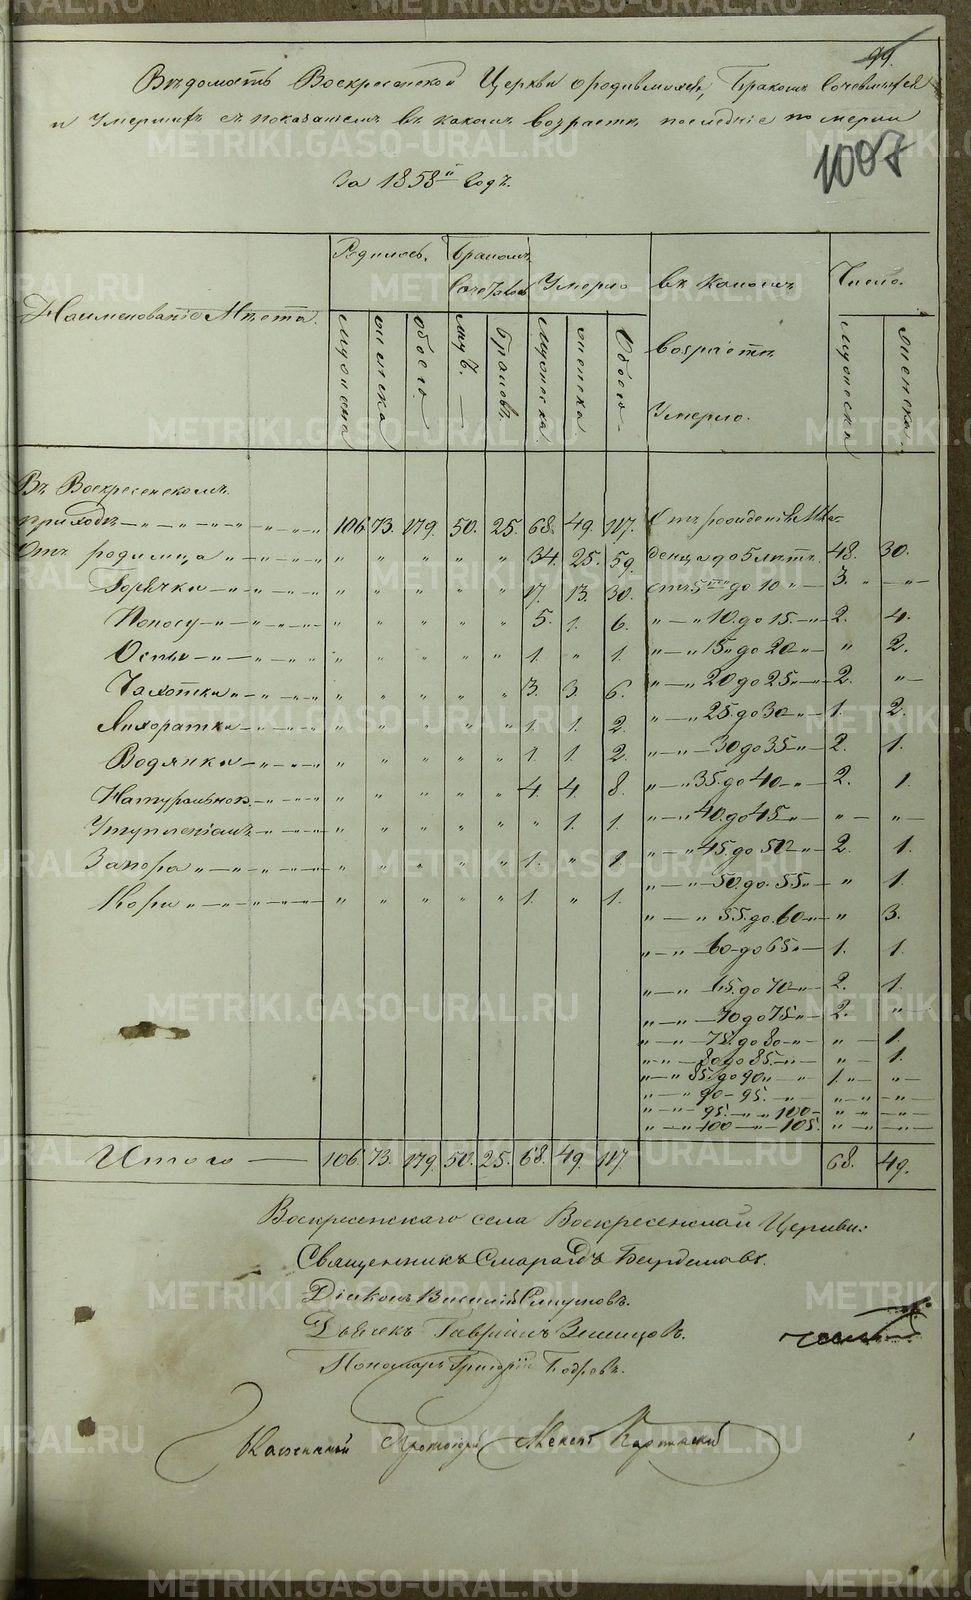 99.
Вѣдомость Воскресенской Церкви о родившихся, Бракомъ Сочетавшихся
и Умершихъ съ показаніемъ въ какомъ возрастѣ послѣдніе померли
1007
За 1858й Годъ.
Наименованіе Мѣста.
Родилось. Бракомъ Сочеталось Умерло въ какомъ возрастѣ Умерло. Число.
мужеска женска обоего мужъ. Браковъ. мужеска женска. Обоего мужеска женска.
Въ Воскресенскомъ
приходѣ 106. 73. 179. 50. 25. 68. 49. 117. Отъ рожденія Мла-
Отъ родимца " " " " " 34. 25. 59. денца до 5 лѣтъ. 48. 30.
Горячки " " " " " 17. 13. 30. отъ 5ти до 10 " 3. "
Поносу " " " " " 5. 1. 6. " " 10. до 15. " 2. 4.
Оспы " " " " " 1. " 1. " " 15 до 20 " " 2.
Чахотки " " " " " 3. 3. 6. " " 20 до 25 " 2. "
Лихоратки " " " " " 1. 1. 2. " " 25. до 30 " 1. 2.
Водянки " " " " " 1. 1. 2. " " 30 до 35 " 2. 1.
Натуральною " " " " " 4. 4. 8. " " 35. до 40 " 2. 1.
" " " " " " 1. 1. " " 40. до 45 " " "
Запора " " " " " 1. " 1. " " 45. до 50 " 2. 1.
Кори " " " " " 1. " 1. " " 50. до 55 " " 1.
" " 55. до 60 " " 3.
" " 60 до 65 " 1. 1.
" " 65. до 70 " 2. 1.
" " 70 до 75 " 2. "
" " 75. до 80 " " 1.
" " 80 до 85. " " 1.
" " 85. до 90 " 1. "
" " 90 - 95. " " "
" " 95. " 100 " "
" " 100 " 105. " "
Итого 106. 73. 179. 50. 25. 68. 49. 117. 68. 49.
Воскресенскаго села Воскресенской Церкви:
Священникъ Смарагдъ
Діаконъ Василій Смирновъ.
Дьячекъ Гавріилъ
Пономарь Григорій Бобровъ.
Протоіерей
METRIKI.GASO-URAL.RU